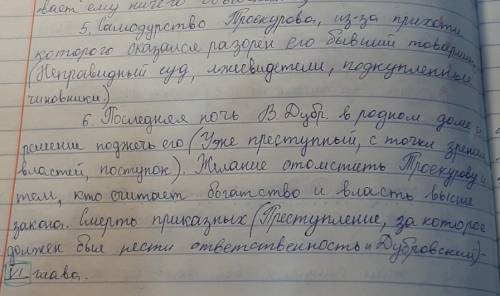 вает ему ничего
5. Самодурство Троекурова, из-за прихоти
которого оказался разорен его бывший товарищ
(Неправидный суд, лжесвидетели, подкупленные
чиновники)
6. Последняя ночь В. Дубр. в родном доме и
решение поджечь его (Уже преступный, с точки зрения
властей, поступок). Желание отомстить Троекурову и
тем, кто считает богатство и власть выше
закона. Смерть приказных (Преступление, за которое
должен был нести ответственность и Дубровский) -
VI глава.